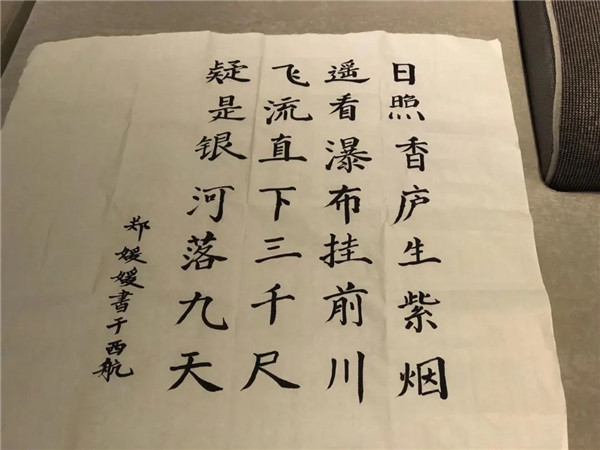 日照香庐生紫烟
遥看瀑布挂前川
飞流直下三千尺
疑是银河落九天
郑媛媛书于西航